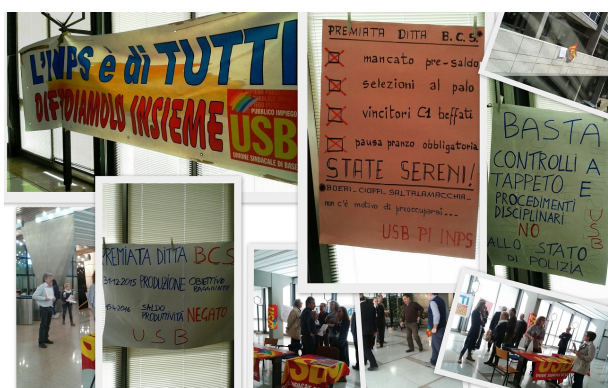 L'INPS è di TUTTI
DIFENDIAMOLO INSIEME
PUBBLICO IMPIEGO
USB
UNIONE SINDACALE DI BASE
PREMIATA DITTA B.C.S.*
mancato pre-saldo
selezioni al palo
vincitori C1 beffati
pausa pranzo obbligatoria
STATE SERENI!
BOERI-CIOFFI-SALTALAMACCHIA-
non c'è motivo di preoccuparvi...
USB PI INPS
BASTA
CONTROLLI A
TAPPETO E
PROCEDIMENTI
DISCIPLINARI
NO
ALLO STATO
DI POLIZIA
USB
PREMIATA DITTA BCS
31-12-2015 PRODUZIONE OBIETTIVO
RAGGIUNTO
SALDO
PRODUTTIVITÀ NEGATO
USB
USB